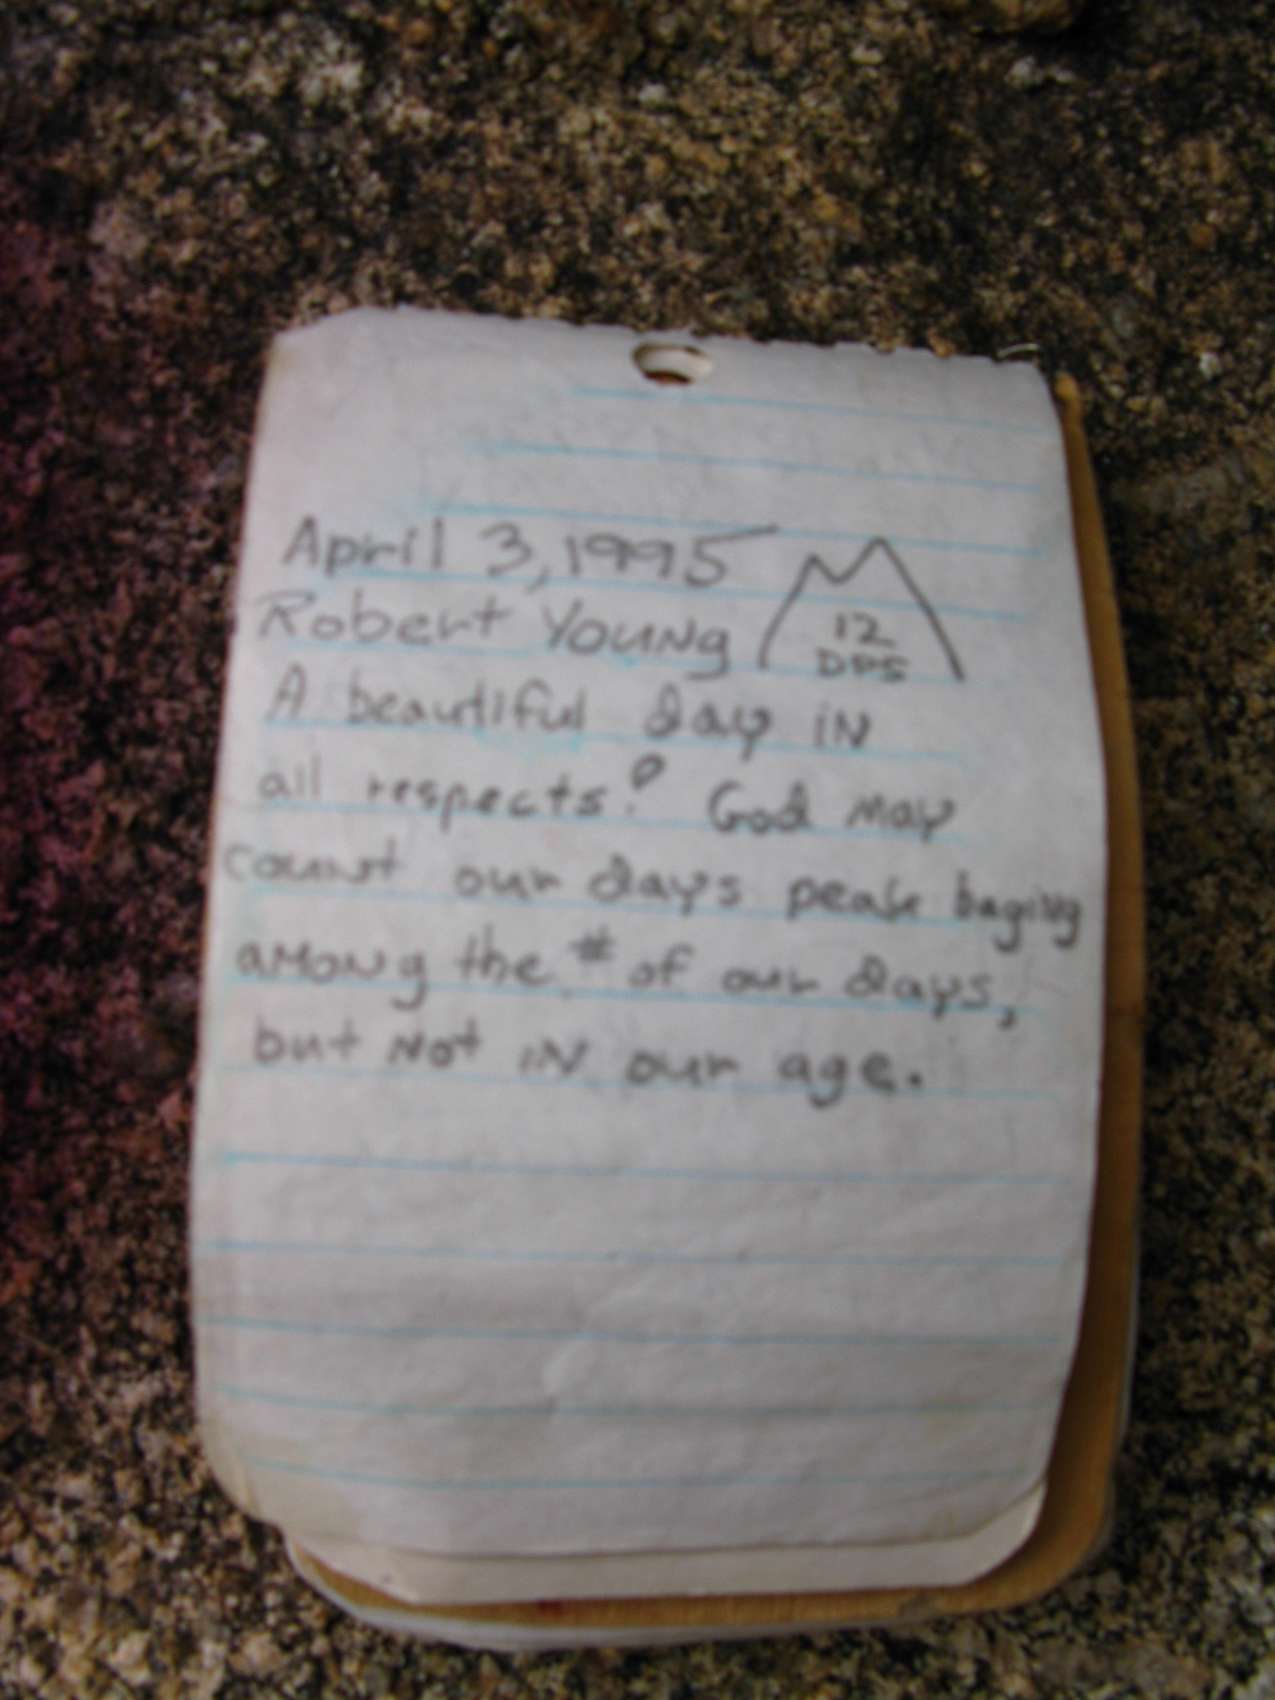 April 3, 1995
Robert Young
12
DPS
A beautiful day in
all respects! God may
count our days peak baging
among the # of our days,
but not in our age.